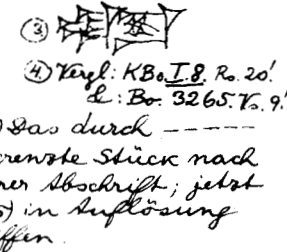 ③
④ Vergl: KBo. I. 8. Rs. 20!
&: Bo. 3265. Vs. 9!
) Das durch -----
renzte Stück nach
rer Abschrift; jetzt
) in Auflösung
ffen.